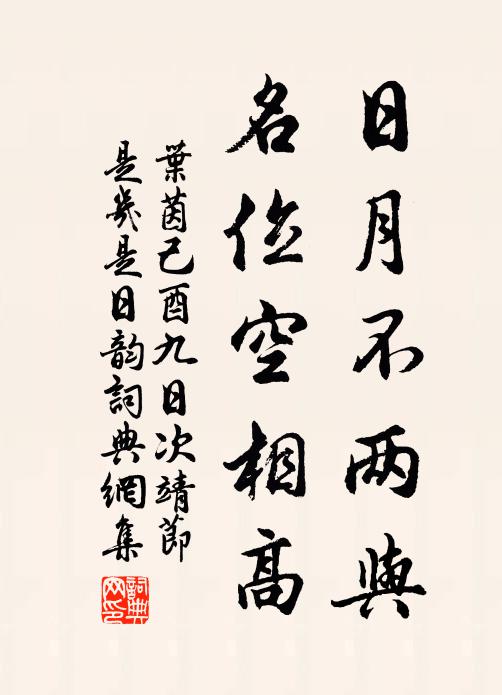 日月不两與
名位空相高
葉茵己酉九日次靖節
是歲是日韻詞典網集
詞典网印